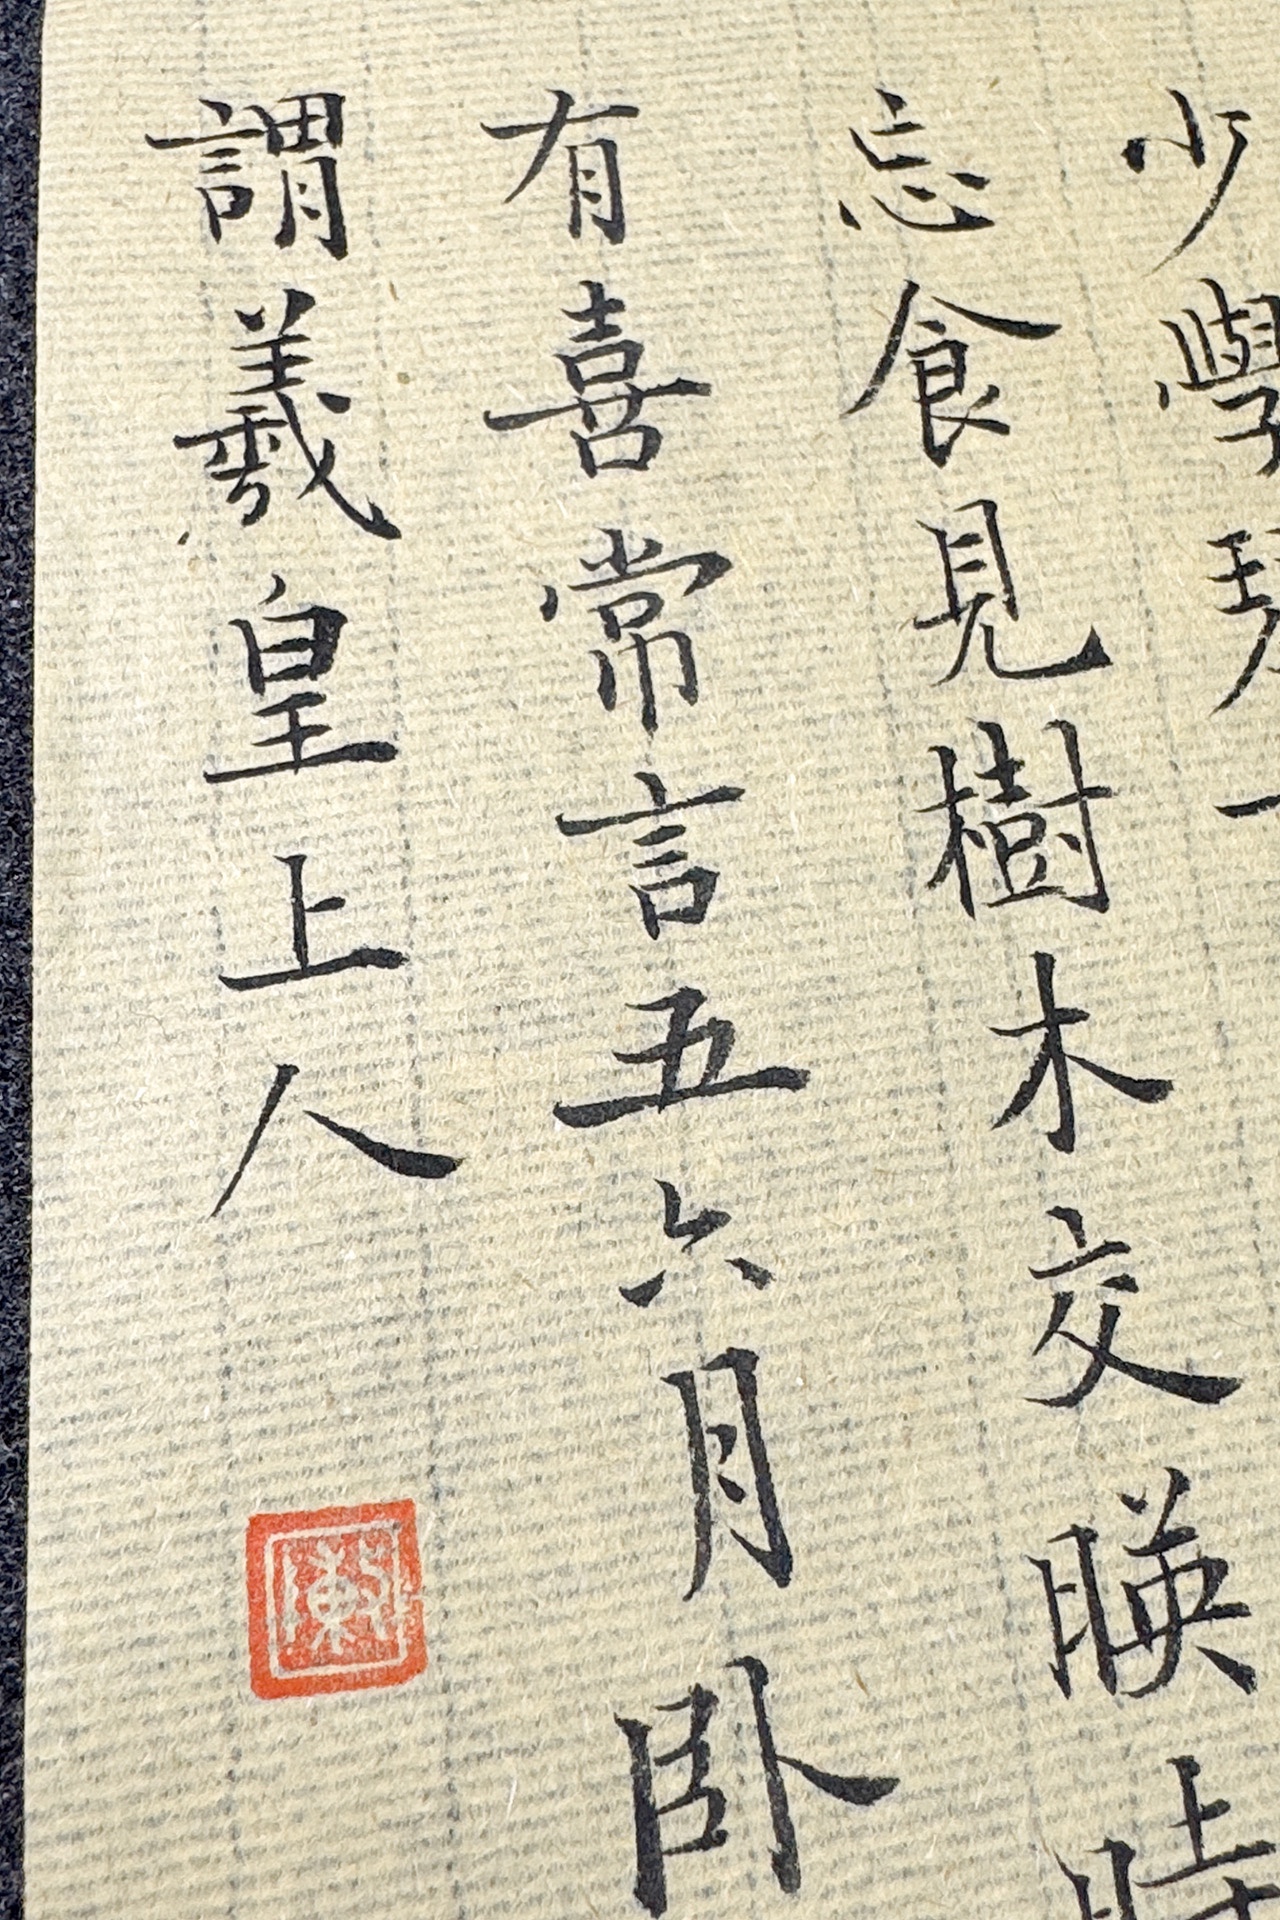 少學琴
忘食見樹木交暎時
有喜常言五六月臥
謂羲皇上人